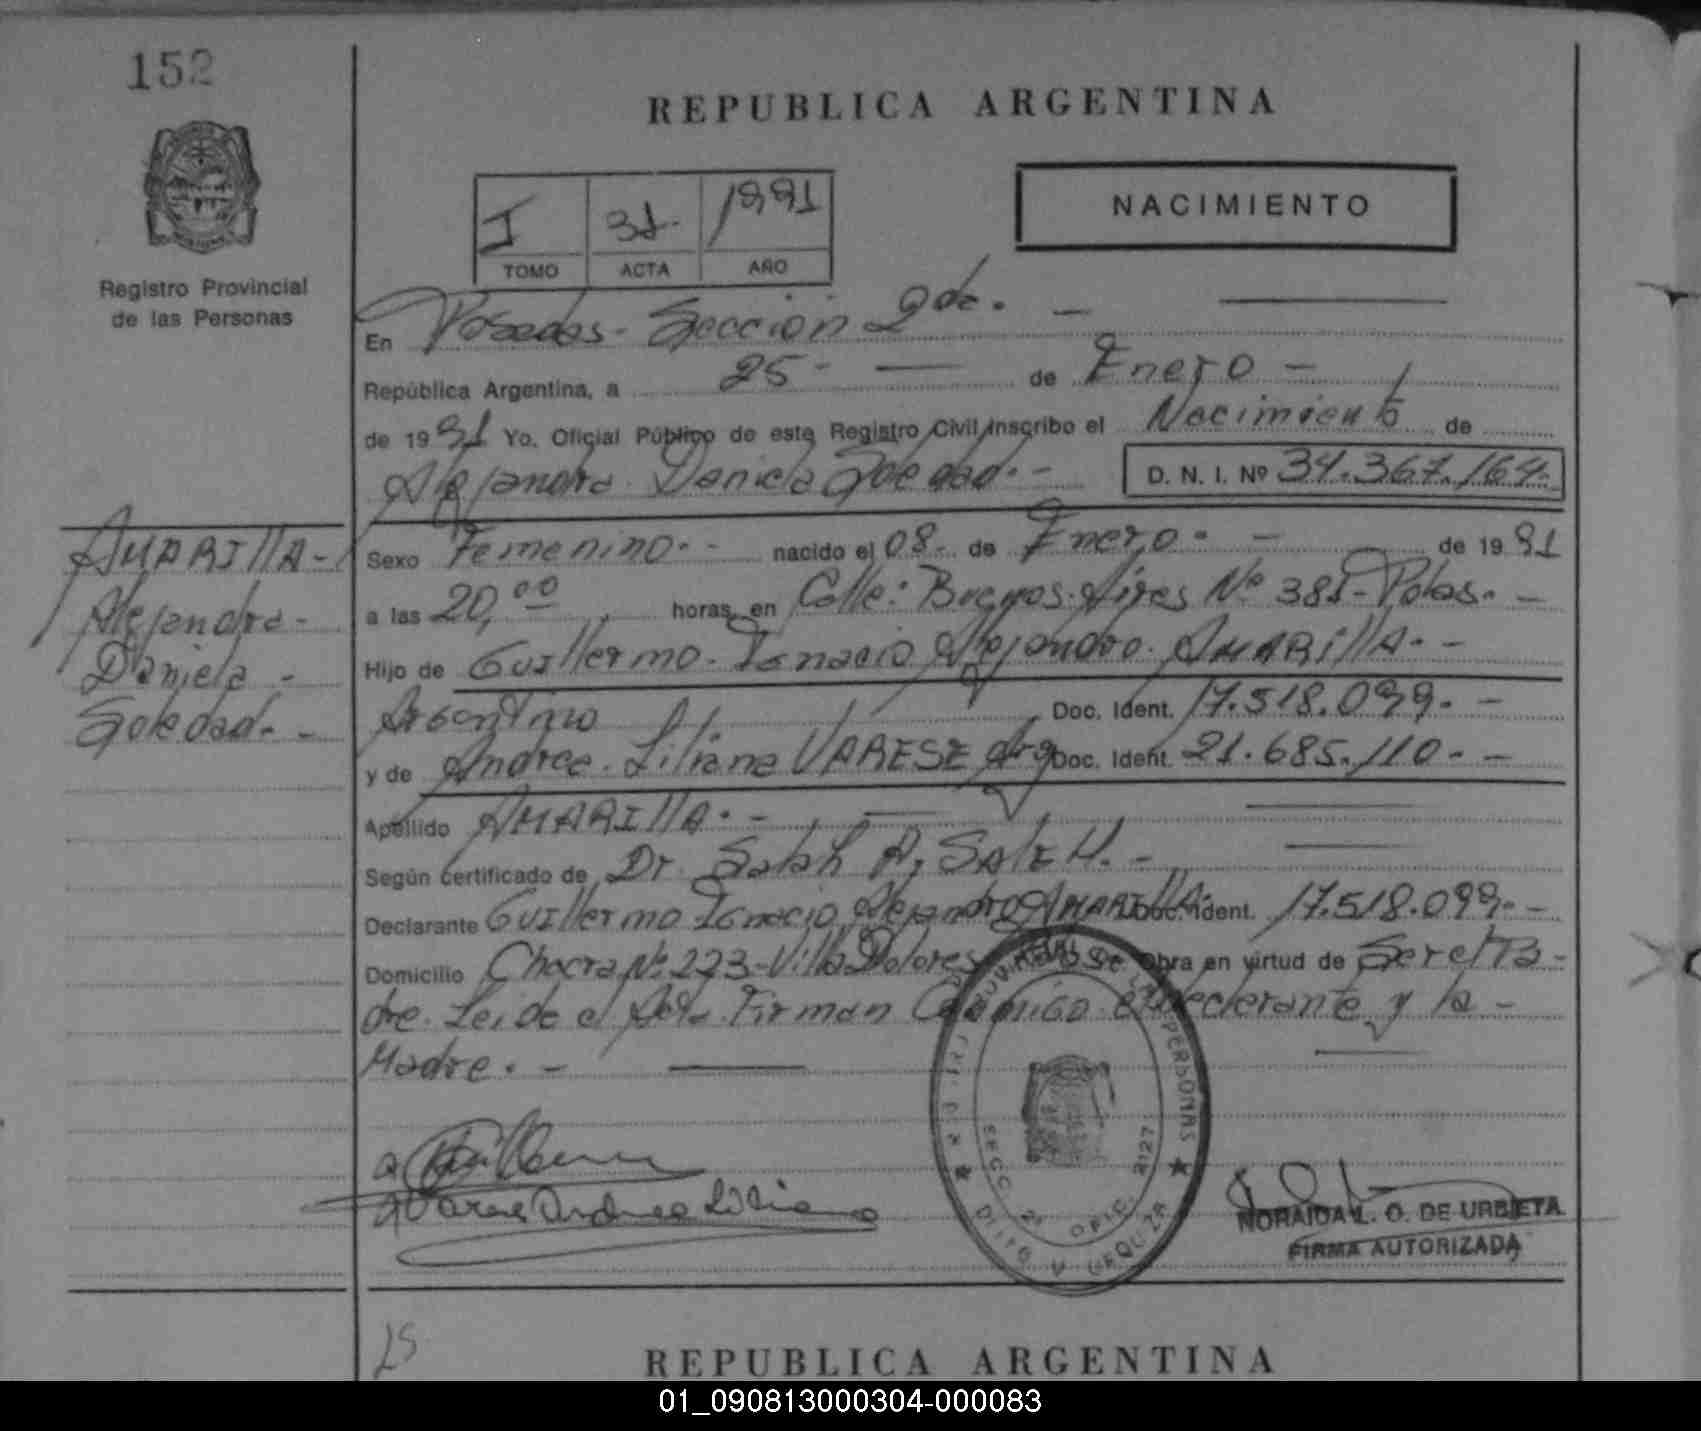 152
REPUBLICA ARGENTINA
NACIMIENTO
I 31- 1991
TOMO ACTA AÑO
Registro Provincial
de las Personas
En Posadas - Sección 2da. -
República Argentina, a 25- de Enero -
de 1991 Yo. Oficial Público de este Registro Civil Inscribo el Nacimiento de
Alejandra Daniela Soledad. - D. N. I. Nº 34.367.164.
AMARIllA -
Alejandra -
Daniela -
Soledad. -
Sexo Femenino. - nacido el 08- de Enero. - de 1991
a las 20,00 horas, en Calle: Buenos Aires Nº 381- Pdas. -
Hijo de Guillermo Ignacio Alejandro AMARIllA. -
Argentino Doc. Ident. 17.518.099. -
y de Andrea Liliana VARESE Arg Doc. Ident. 21.685.110. -
Apellido AMARIllA. -
Según certificado de Dr. Salah A, SAlEH. -
Declarante Guillermo Ignacio Alejandro AMARIllA. Doc. Ident. 17.518.099. -
Domicilio Chacra Nº 223-Villa Dolores Obra en virtud de Ser el Pa-
dre. Leida el Acta Firman Conmigo el declarante y la -
Madre. -
Varese Andrea Liliana
PERSONAS
SECC. 2ª OFIC. 2127
NORAIDA L. O. DE URBIETA
FIRMA AUTORIZADA
REPUBLICA ARGENTINA
01_090813000304-000083